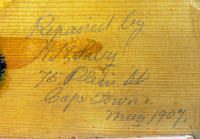 Repaired by
W. H. Savy
76 Plein St
Cape Town.
May 1907.